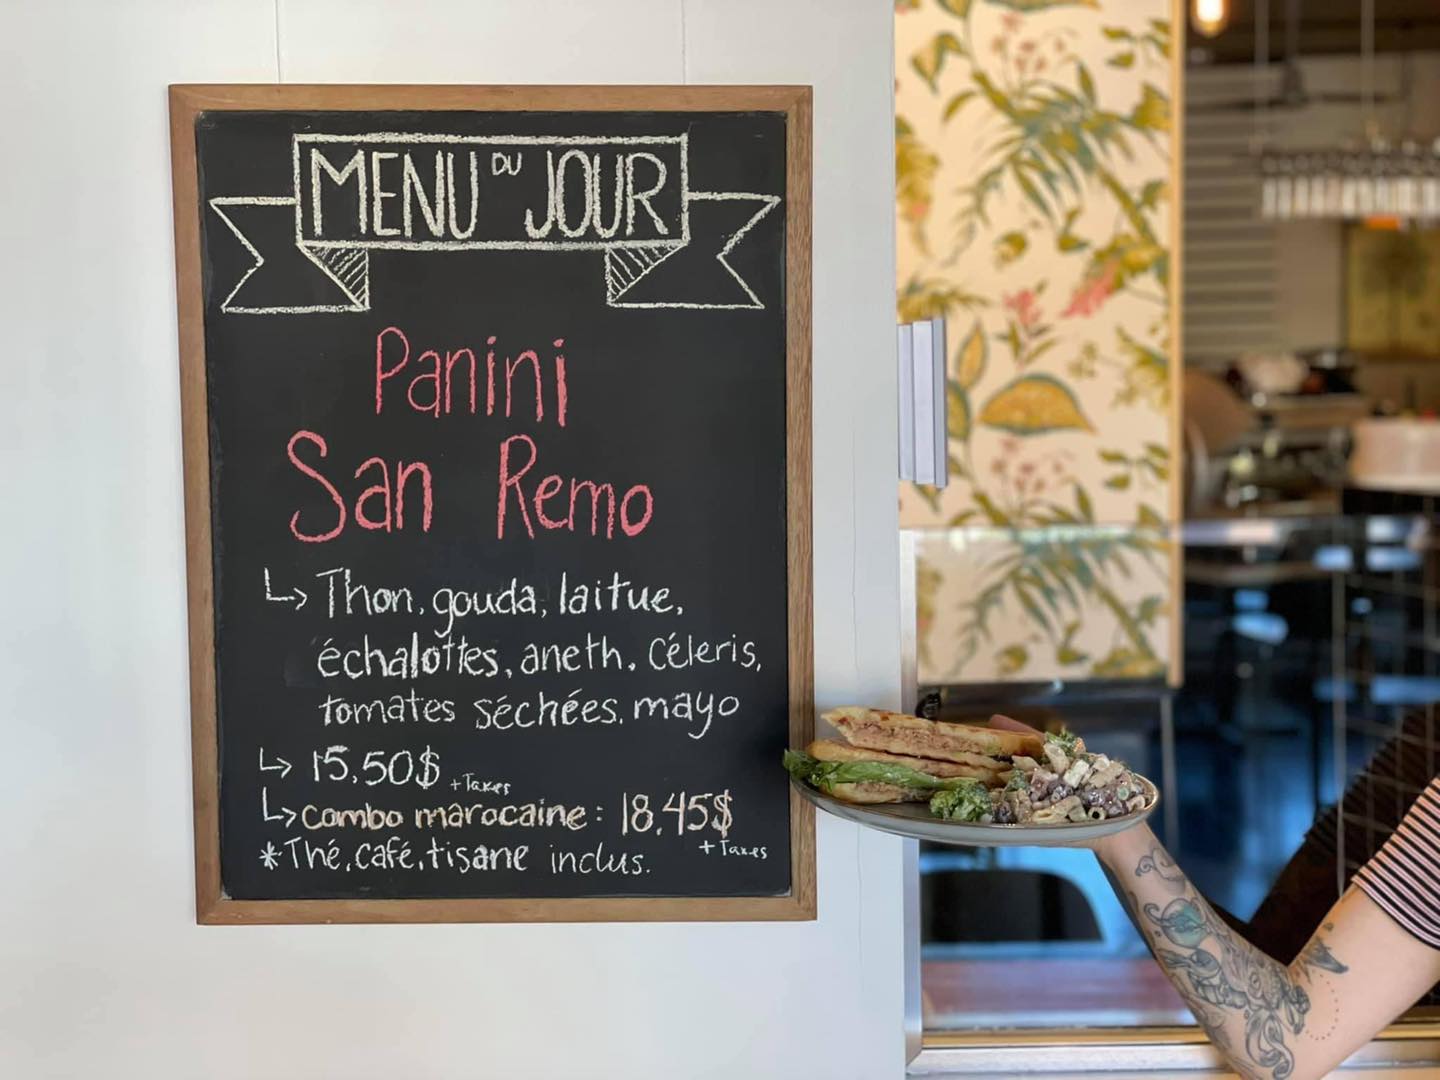 MENU DU JOUR
Panini
San Remo
Thon, gouda, laitue,
échalottes, aneth, Céleris,
tomates séchées, mayo
15,50$ +Taxes
combo marocaine: 18,45$
+Taxes
* Thé, café, tisane inclus.